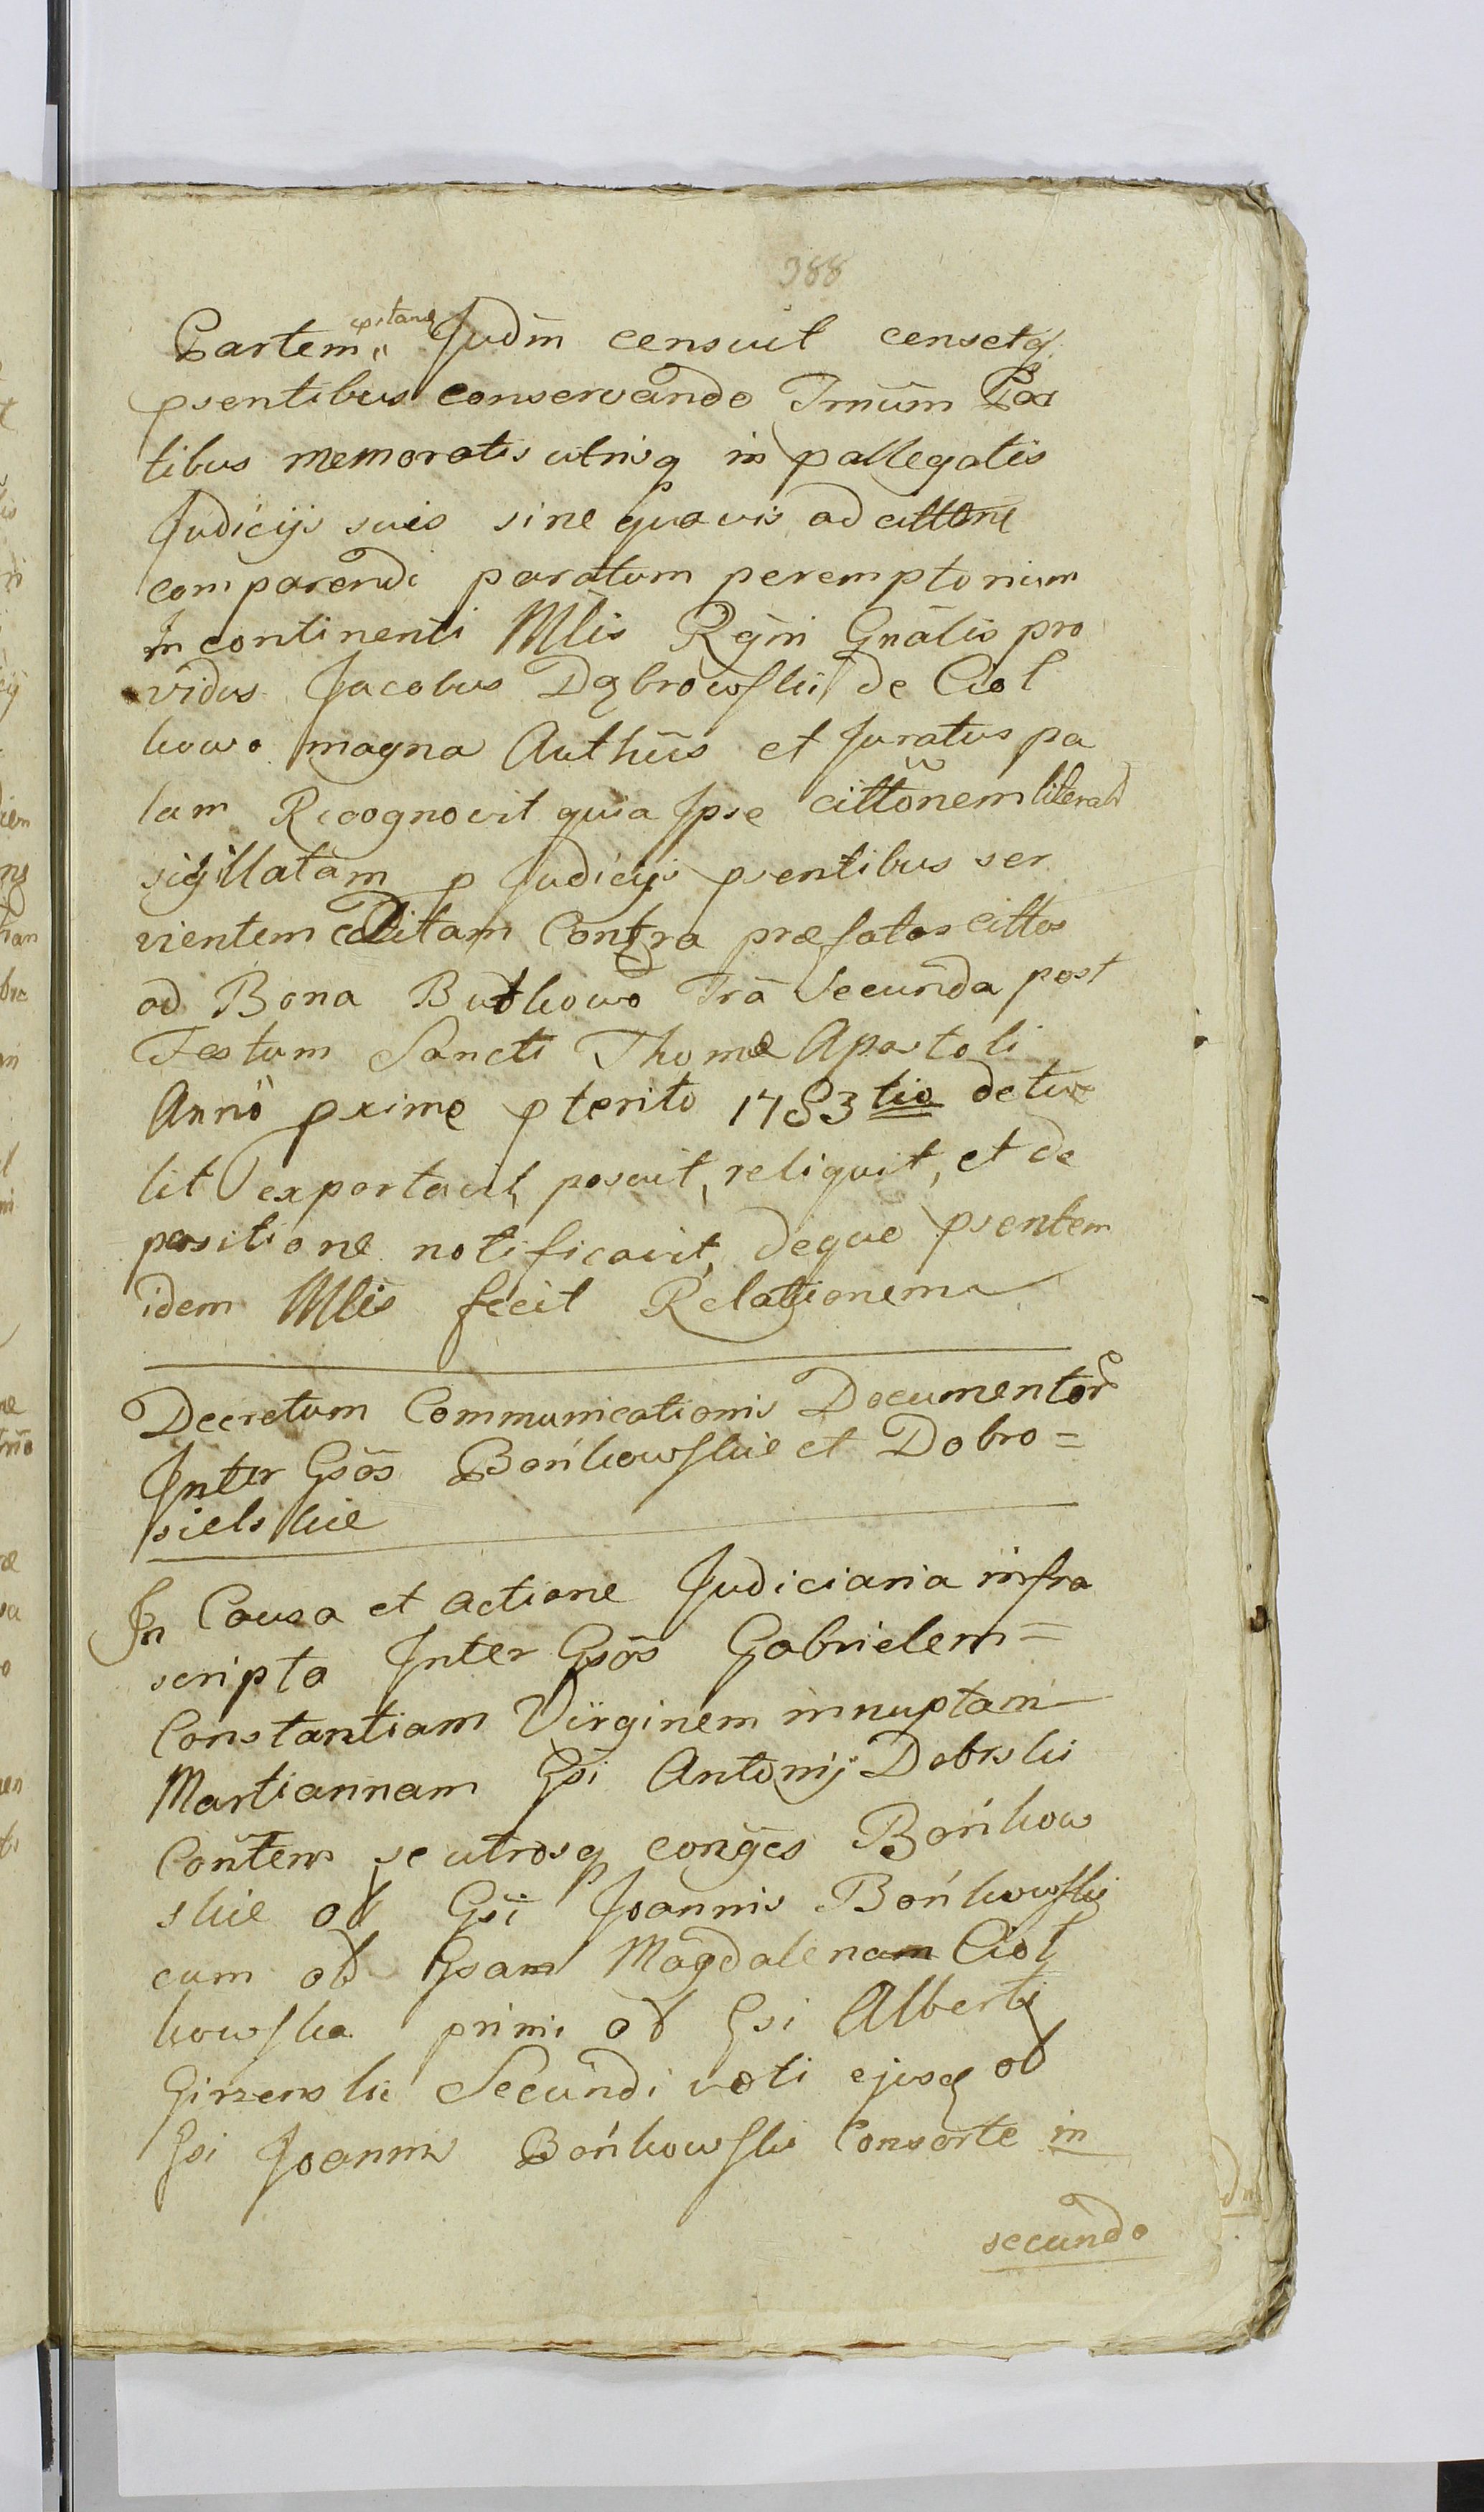 388
Partem citang Judm censuit censetq
psentibus conservando Trnum Par
tibus memoratis utrisq in pallegatis
Judicijs suis sine quavis adcittone
comparendi paratum peremptorium
In continenti Mlis Regni Gnalis pro
vidus Jacobus Dąbrowski de Cioł
kowo magna Authus et Juratus pa
lam Recognovit quia Ipse cittonem literali
sigillatam p Judicijs psentibus ser
vientem editam Contra præfatos cittos
ad Bona Budkowo Tra Secunda post
Festum Sancti Thomæ Apostoli
Anno pxime pterito 1783tio detu
lit exportavit, posuit, reliquit, et de
positione notificavit, deque psentem
idem Mlis fecit Relationem
Decretum Communicationis Documentor
Inter Gsos Bońkowskie et Dobro=
sielskie
In Causa et actione Judiciaria infra
scripta Inter Gsos Gabrielem=
Constantiam Virginem innuptam
Martiannam Gsi Antonij Dobrski
Contem se utrosq conges Bońkow
skie ol Gsi Joannis Bońkowski
cum ol Gsam Magdalenam Cioł
kowska primi ol Gsi Alberti
Girzenski Secundi voti ejusq ol
Gsi Joannis Bońkowski Consorte in
secundo